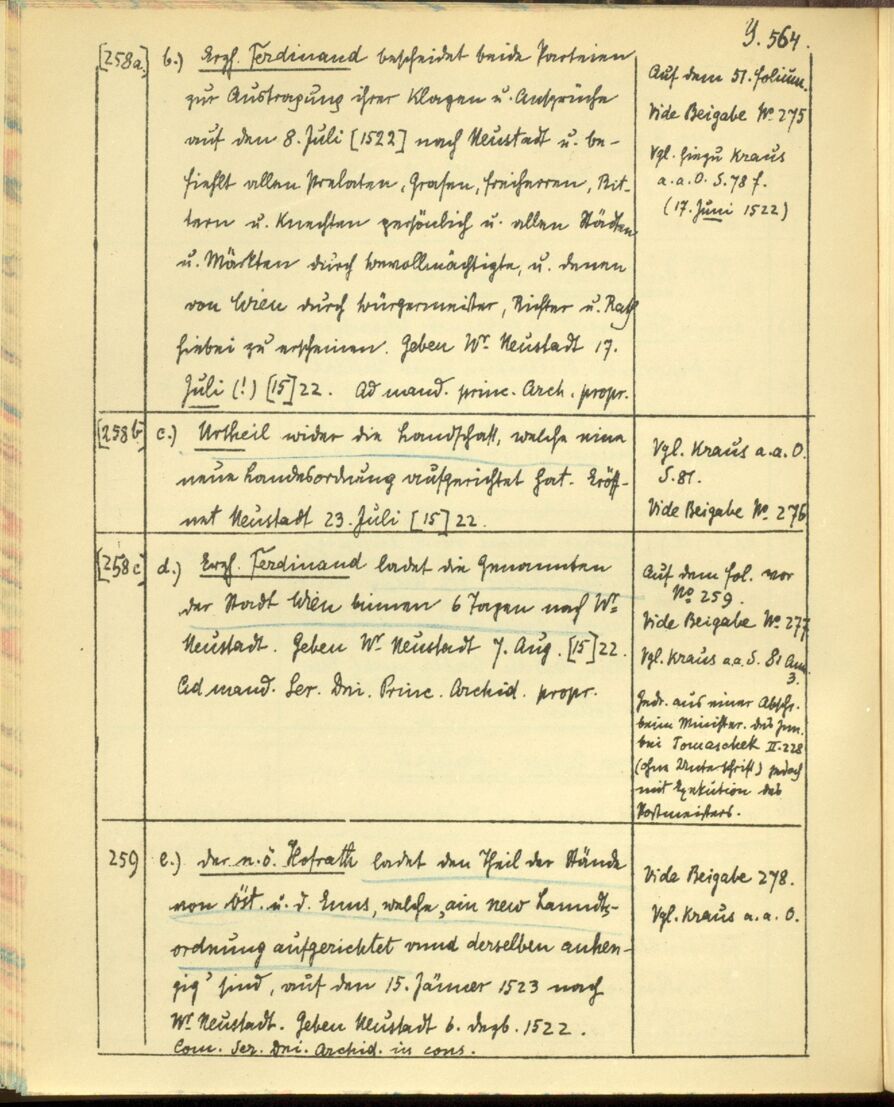 Y. 564.
[258a] b.) Erzh. Ferdinand bescheidet beide Parteien
zur Austragung ihrer Klagen u. Ansprüche
auf den 8. Juli [1522] nach Neustadt u. be-
fiehlt allen Prelaten, Grafen, Freiherren, Rit-
tern u. Knechten persönlich u. allen Städten
u. Märkten durch bevollmächtigte, u. denen
von Wien durch Bürgermeister, Richter u. Rath
hiebei zu erscheinen. Geben Wr. Neustadt 17.
Juli (!) [15]22. Ad mand. princ. Arch. propr.
Auf dem 51. folium.
Vide Beigabe No. 275
Vgl. hiezu Kraus
a. a. O. S. 78 f.
(17. Juni 1522)
[258b] c.) Urtheil wider die Landschaft, welche eine
neue Landesordnung aufgerichtet hat. Eröff-
net Neustadt 23. Juli [15]22.
Vgl. Kraus a. a. O.
S. 81.
Vide Beigabe No. 276
[258c] d.) Erzh. Ferdinand ladet die Genannten
der Stadt Wien binnen 6 Tagen nach Wr.
Neustadt. Geben Wr. Neustadt 7. Aug. [15]22.
Ad mand. Ser. Dni. Princ. Archid. propr.
Auf dem fol. vor
No. 259.
Vide Beigabe No. 277
Vgl. Kraus a. a. S. 81 Anm.
3.
Gedr. aus einer Abschr.
beim Minister. des Inn.
bei Tomaschek II. 228
(ohne Unterschrift) jedoch
mit Exekution des
Postmeisters.
259 e.) Der n. ö. Hofrath ladet den Theil der Stände
von Öst. u. d. Enns, welche „ain new Lanndts-
ordnung aufgerichtet vnnd derselben anhen-
gig" sind, auf den 15. Jänner 1523 nach
Wr. Neustadt. Geben Neustadt 6. Dezb. 1522.
Com. Ser. Dni. Archid. in cons.
Vide Beigabe 278.
Vgl. Kraus a. a. O.